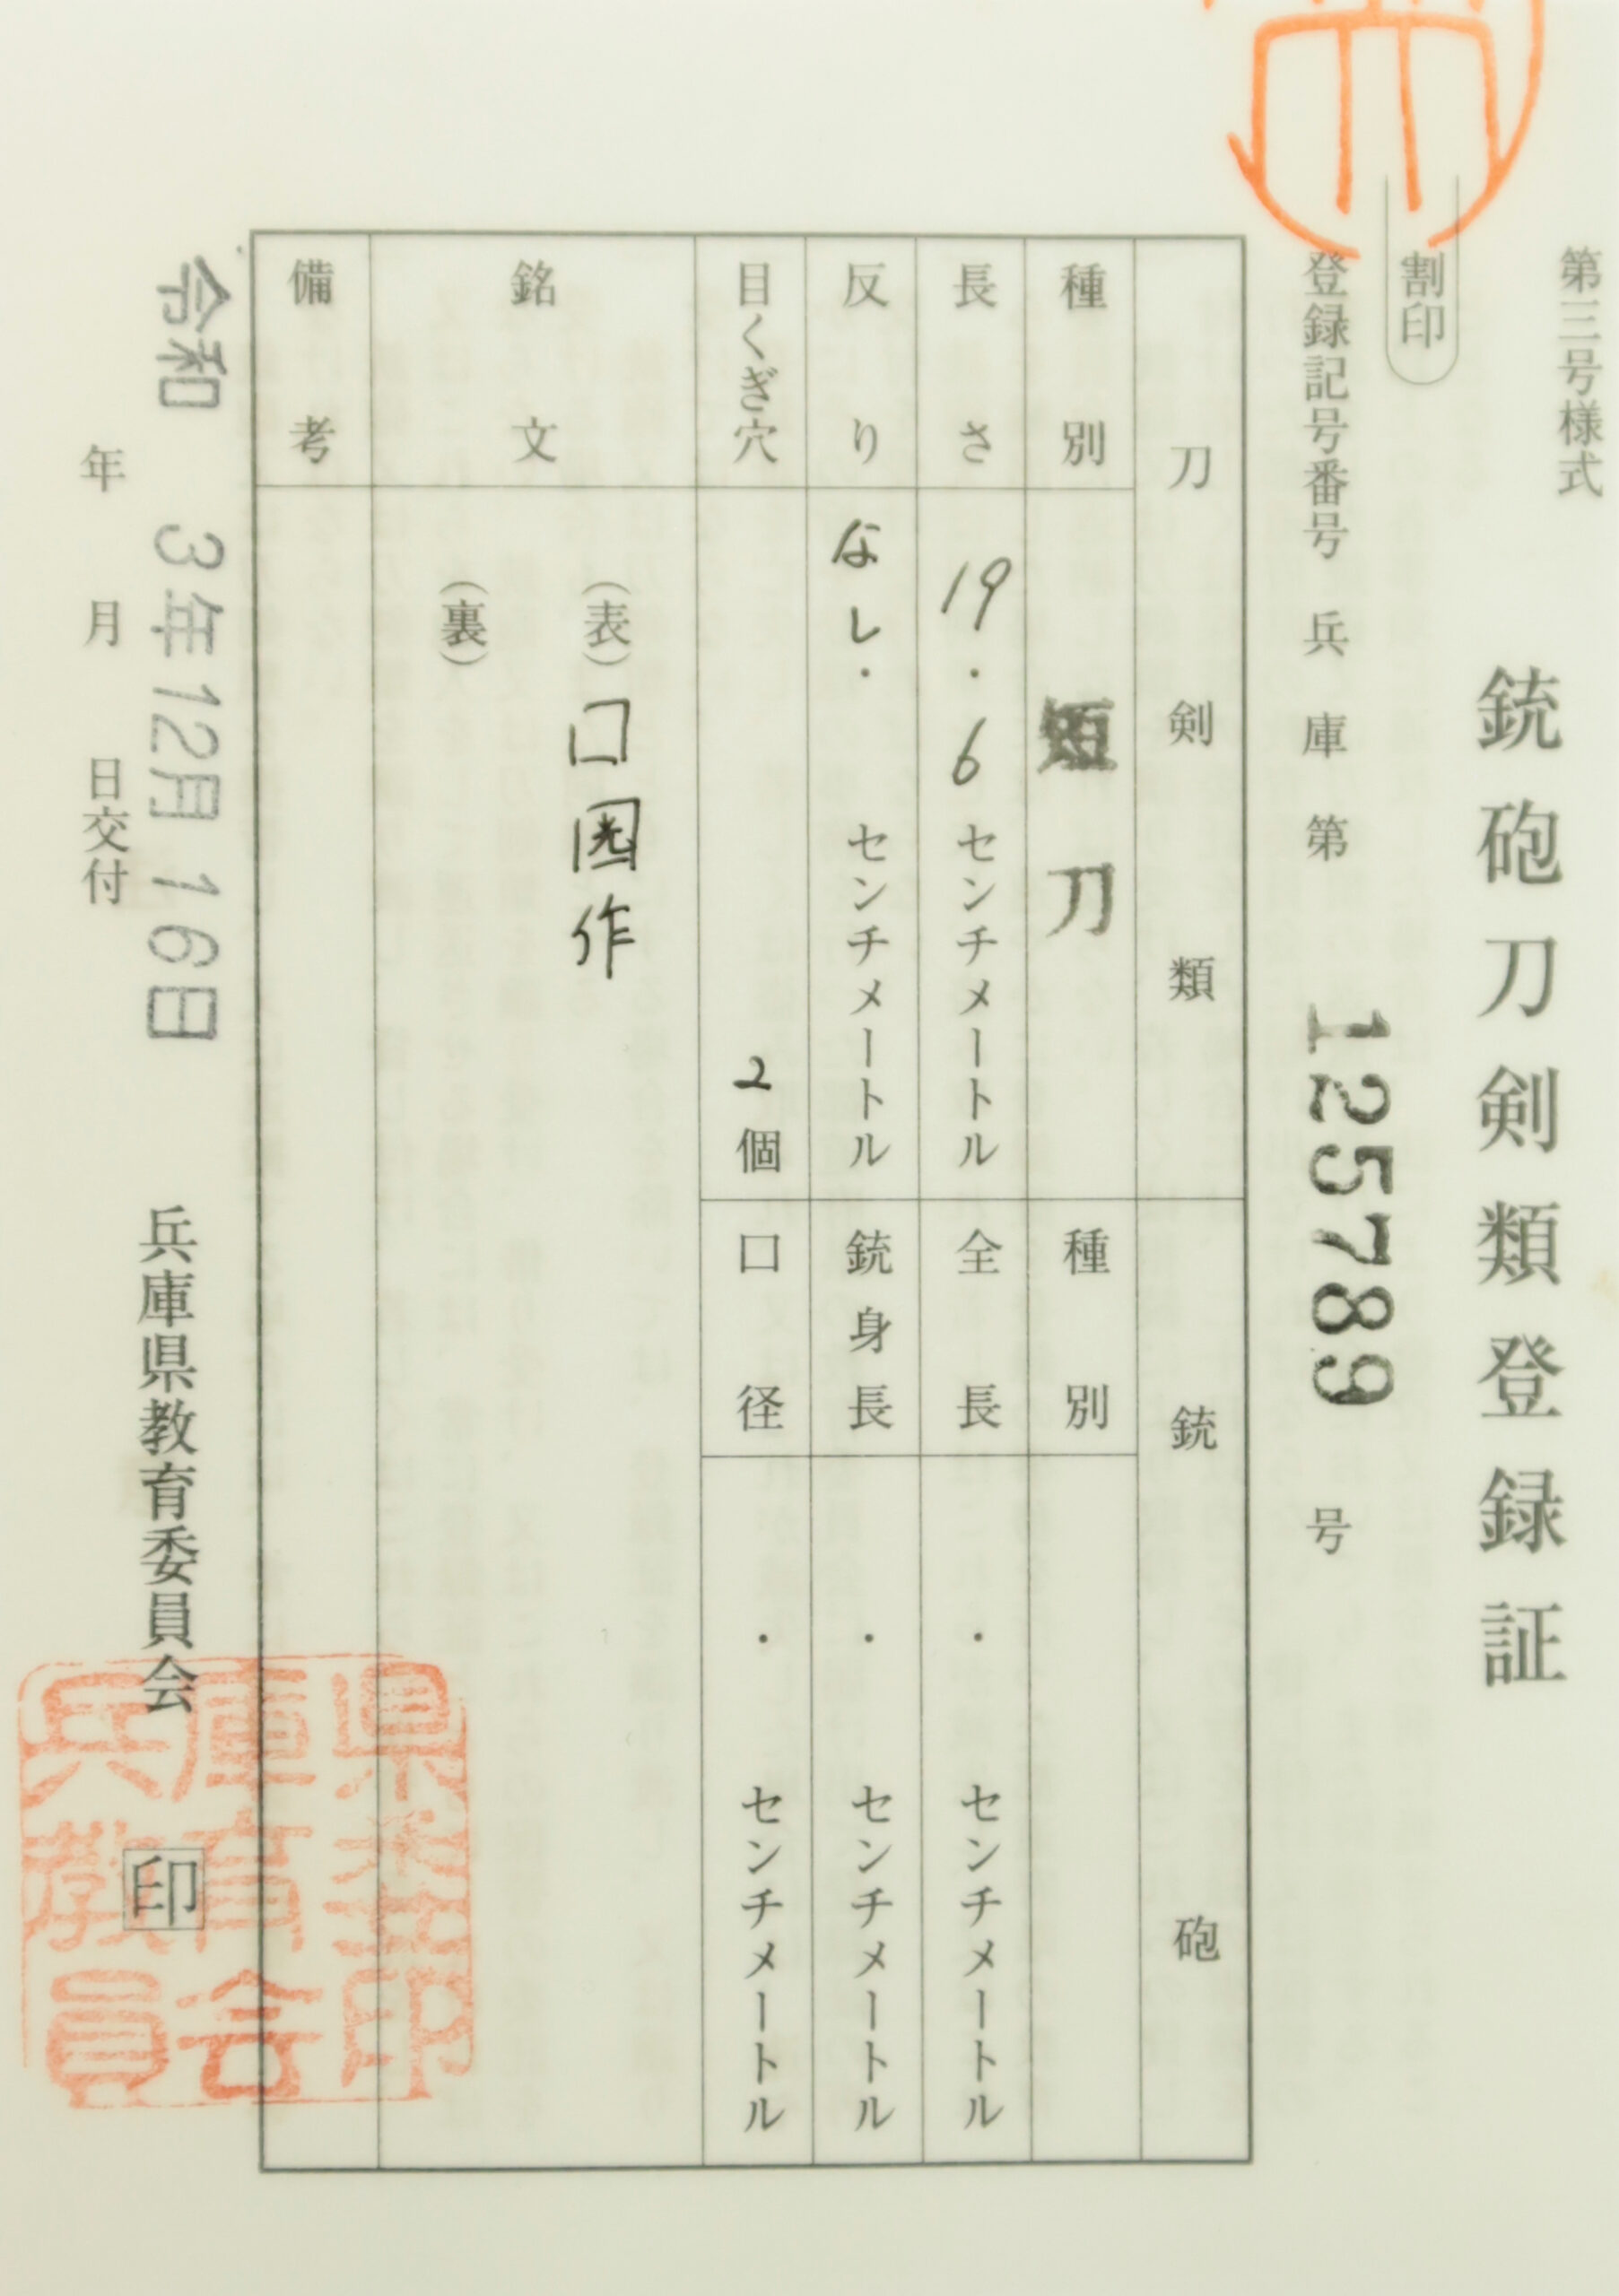 第三号様式
銃砲刀剣類登録証
割印
登録記号番号 兵庫 第 125789 号
刀剣類
種別 短刀
長さ 19.6 センチメートル
反り なし. センチメートル
目くぎ穴 2個
銃砲
種別
全長 . センチメートル
銃身長 . センチメートル
口径 . センチメートル
銘文
(表) 囗 作
(裏)
備考
令和 3年12月16日
年 月 日交付
兵庫県教育委員会 印
兵庫県教育委員会印